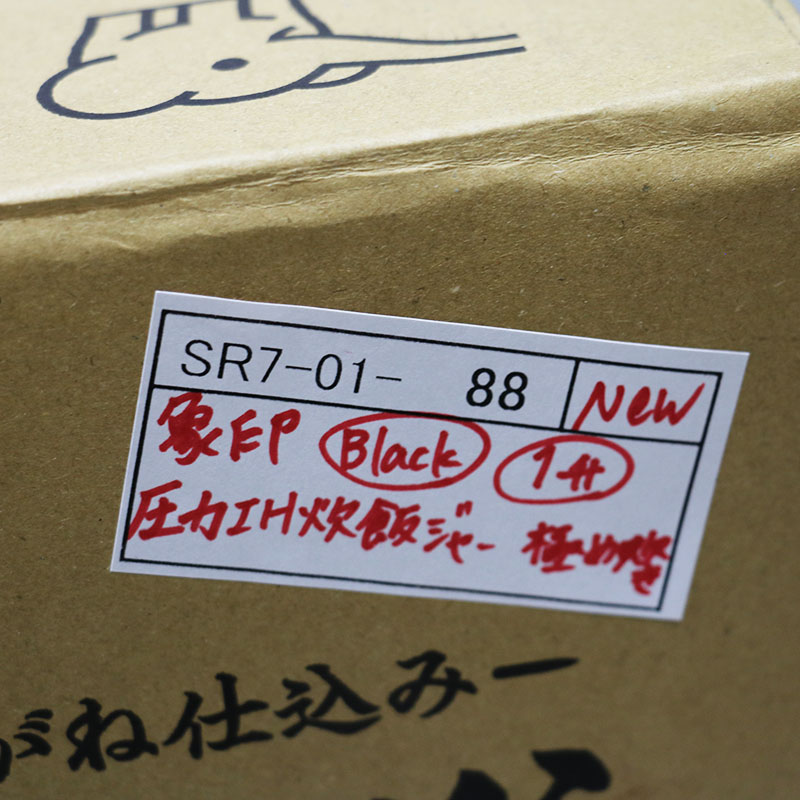 SR7-01- 88 New
象印 Black 1升
圧力IH炊飯ジャー 極め炊き
がね仕込みー